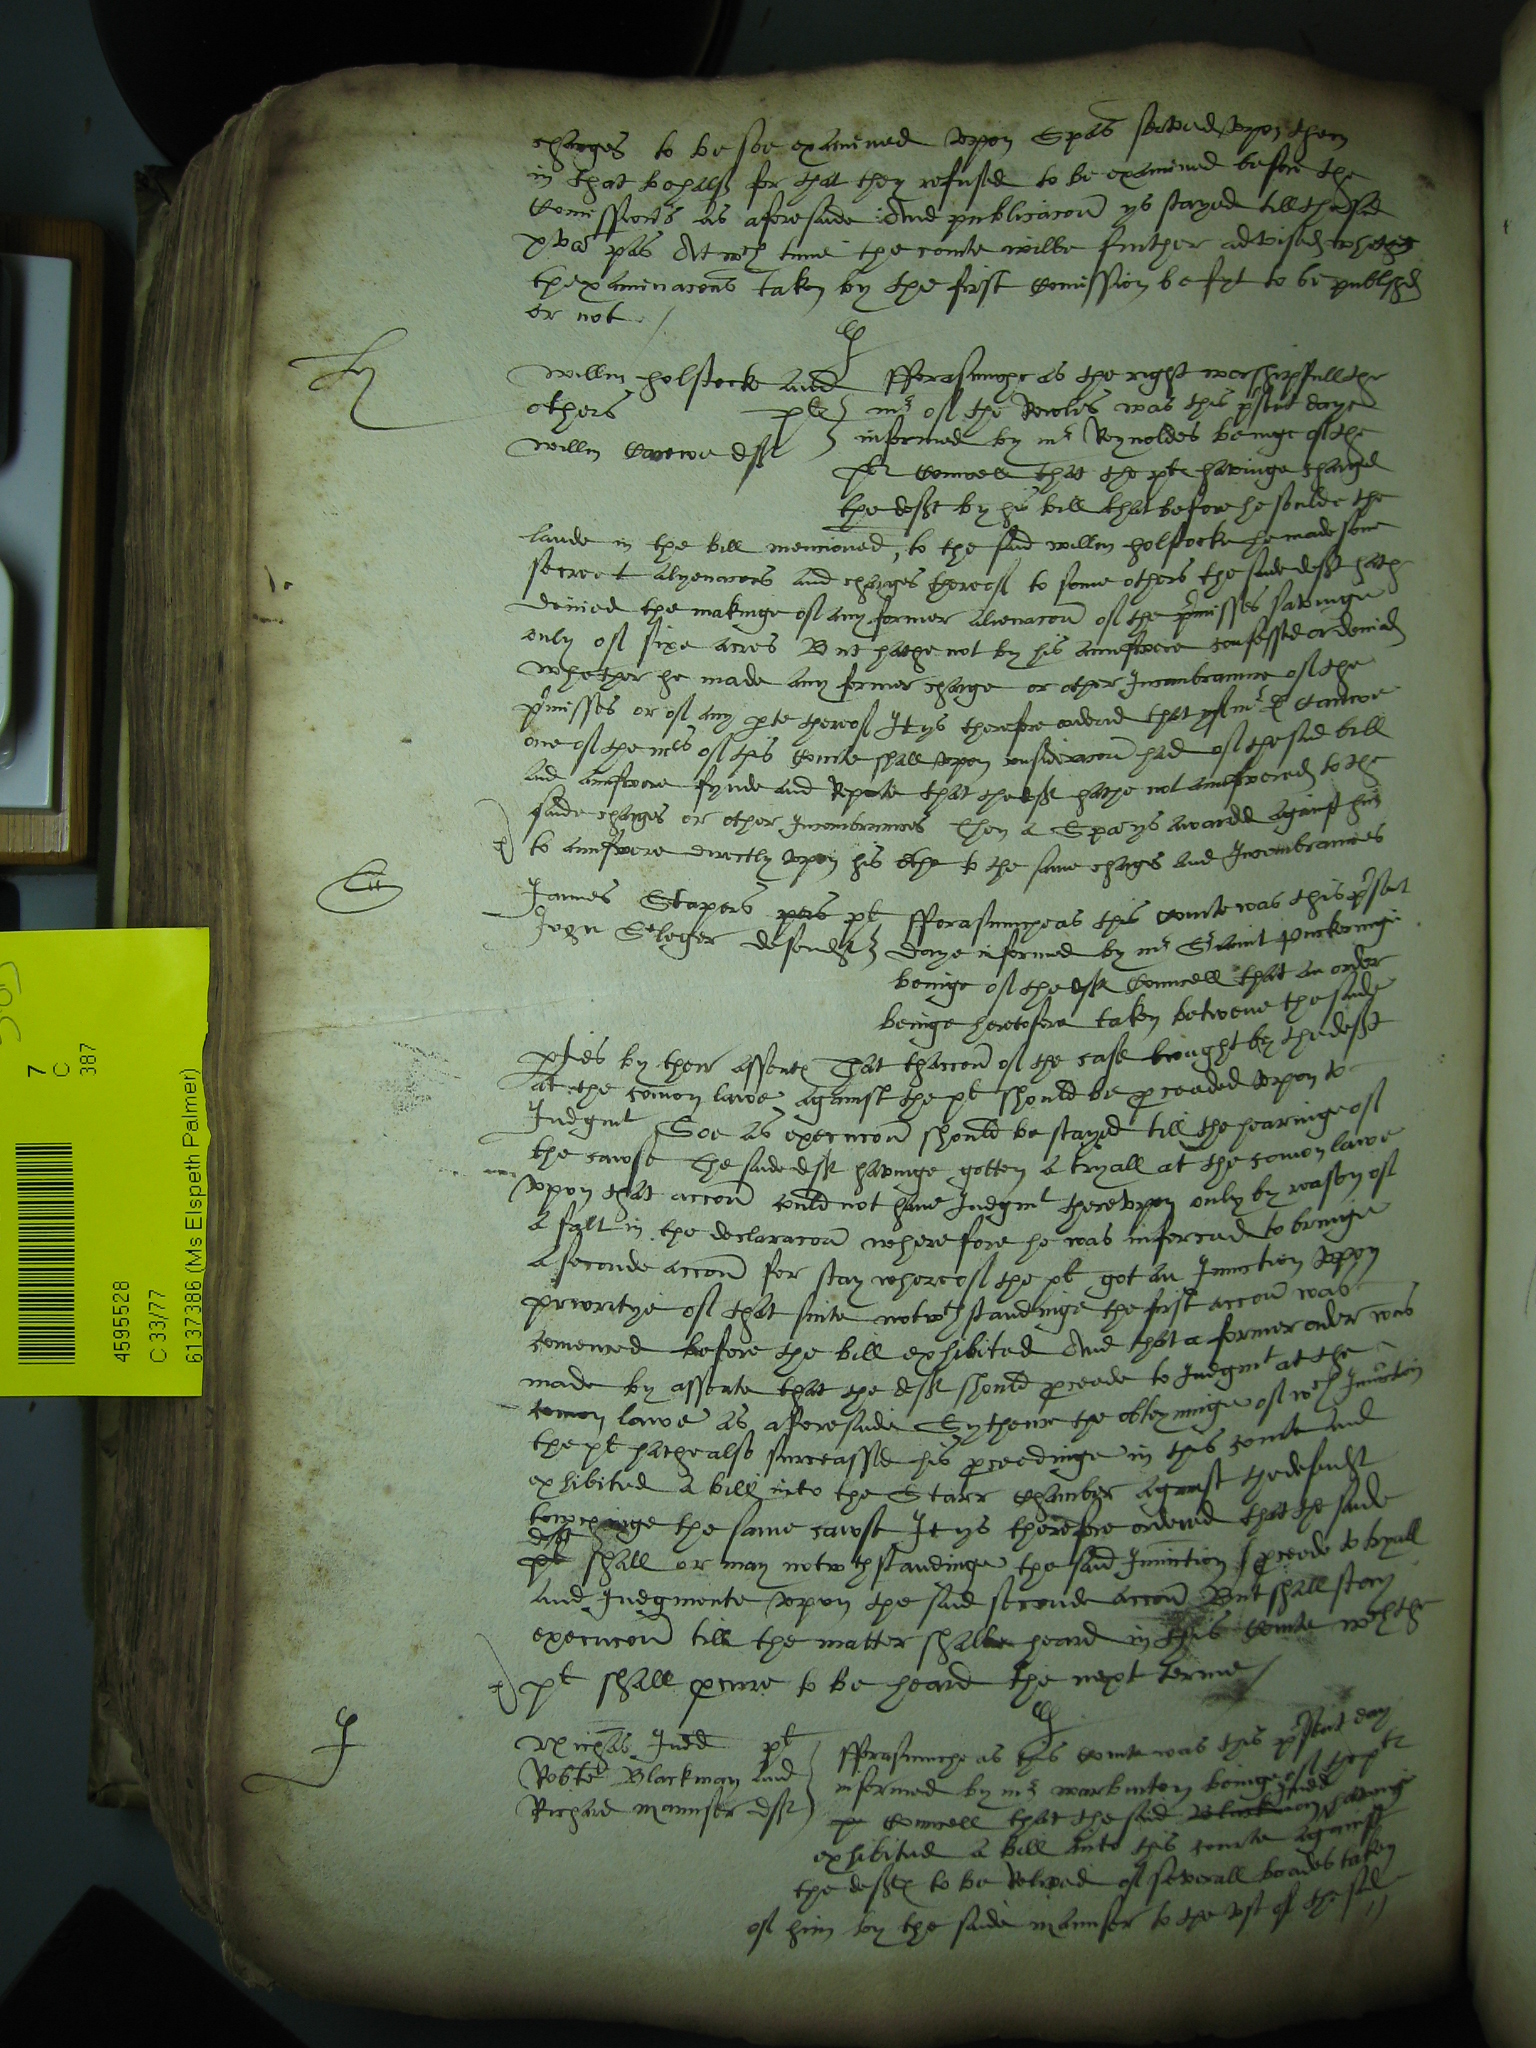 charges to be soe examined vpon Spas served vpon them
in that behalf for that they refused to be examined before the
Comissioñs as aforesaide And publicacon ys stayed till the said
pas At wch time the courte wilbe further advised whether
thexaminacons taken by the first Comission be fyt to be publyshed
or not /
Willm Holstocke and
others plts
Willm Carewe deft
Fforasmuche as the right worshipfull the
mr of the Rowles was this pñt daye
informed by mr Reynoldes beinge of the
plts Councell that the plt havinge charged
the deft by his bill that before he soulde the
lande in the bill mencioned, to the said willm Holstocke he made some
secreet alyenacons and charges thereof to some others the saide deft hath
denied the makinge of any former alienacon of the pmisses savinge
only of sixe acres But hathe not by his answere confessed or denied
whether he made any former charge or other Incumbraunce of the
pmisses or of any pte thereof It ys therefore ordered that yf mr
one of the mrs of this Courte shall vpon consideracon had of the said bill
and answere fynde and Reporte that the deft hathe not answered to the
saide charges or other Incumbrances Then a Spa ys awarded against him
to answere directly vpon his othe to the same charges and Incumbrances
James Stapers plt
John Seleger defendt
Fforasmuche as this Courte was this pñt
daye informed by mr Sriaint Puckeringe
beinge of the deft Councell that an order
beinge heretofore taken betwene the saide
pties by their assents That thaccon of the case brought by the deft
at the comon lawe against the plt should be proceeded vpon to
Judgmt Soe as execucon should be stayed till the hearinge of
the cawse The saide deft havinge gotten a tryall at the comon lawe
vpon that accon could not have Judgmt therevpon only by reason of
a falt in the declaracon wherefore he was inforced to bringe
a seconde accon for stay whereof the plt got an Iniunction vpon
prioritye of that suite notwthstandinge the first accon was
comenced before the bill exhibited And that a former order was
made by assente that the deft should proceede to Judgmt at the
comon lawe as aforesaide Sythence the obteyninge of wch Iniunction
the plt hathe also surceassed his proceedinge in this courte and
exhibited a bill into the Starr Chamber against the defendt
towchinge the same cawse It ys therefore ordered that the saide
deft
plt shall or may notwthstandinge the said Iniunction proceede to tryall
and Judgmente vpon the said seconde accon But shall stay
execucon till the matter shalbe heard in this Courte wch the
plt shall pcure to be heard the next terme /
Judd plt
Robte Blackman and
Richard Maunser defts
Fforasmuche as this Courte was this pñt day
informed by mr Warburton beinge of the plts
Councell that the said Blackman Judd havinge
exhibited a bill into this courte against
the defts to be Relived of severall bondes taken
of him by the saide Maunser to the vse of the said
7
C
387
4595528
C 33/77
6137386 (Ms Elspeth Palmer)